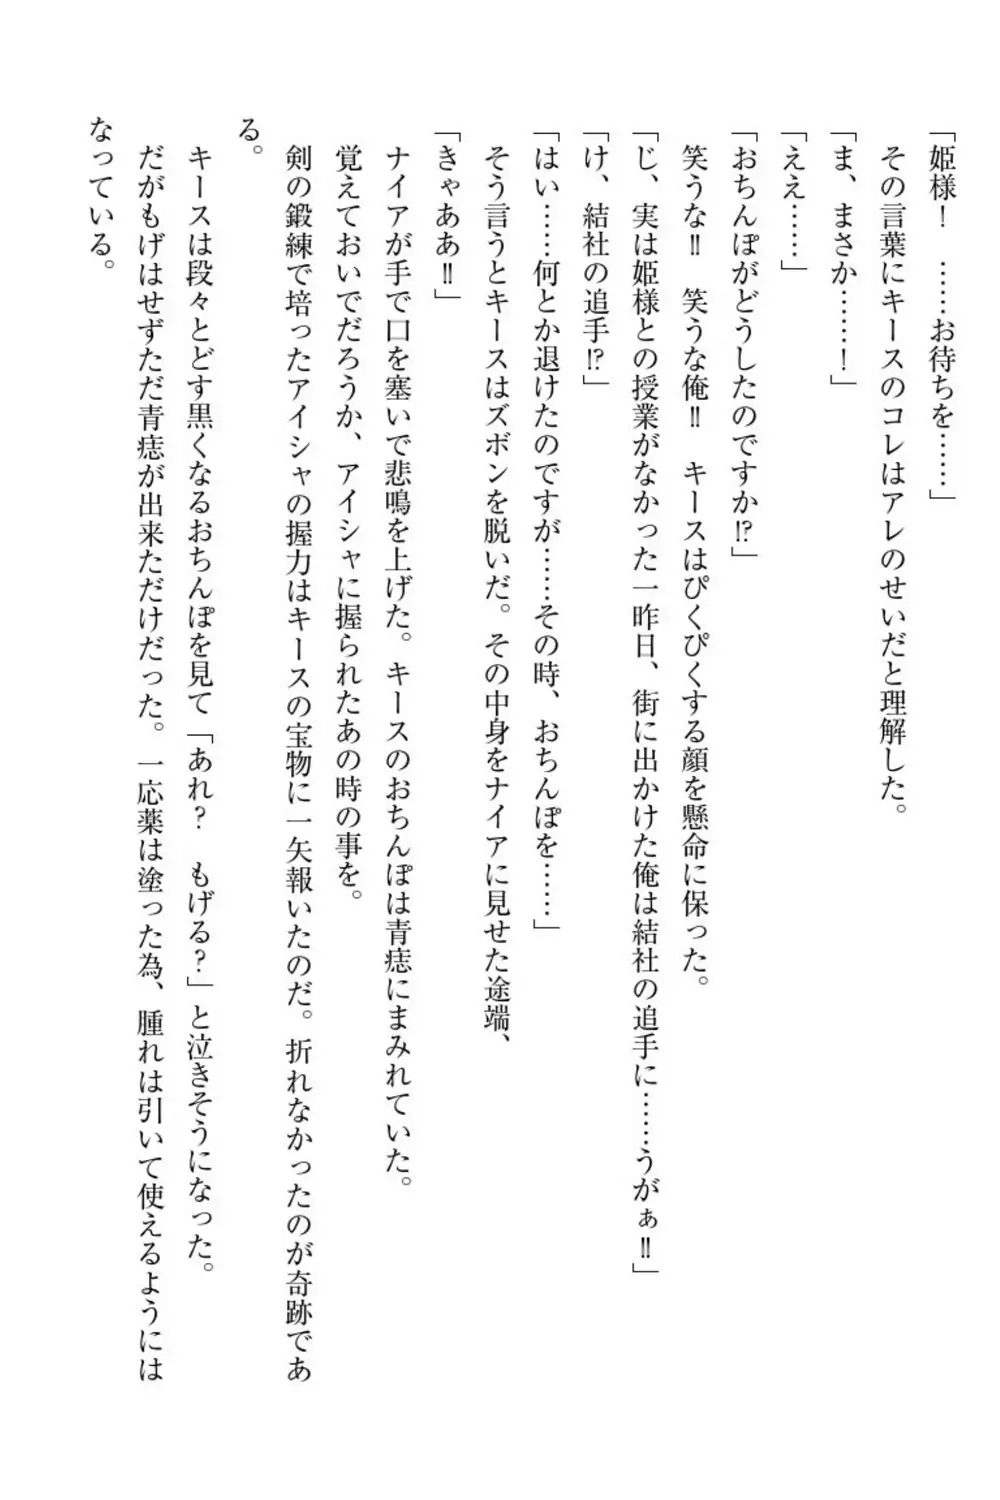 「姫様！　……お待ちを……」
その言葉にキースのコレはアレのせいだと理解した。
「ま、まさか……！」
「ええ……」
「おちんぽがどうしたのですか⁉」
笑うな‼　笑うな俺‼　キースはぴくぴくする顔を懸命に保った。
「じ、実は姫様との授業がなかった一昨日、街に出かけた俺は結社の追手に……うがぁ‼」
「け、結社の追手⁉」
「はい……何とか退けたのですが……その時、おちんぽを……」
そう言うとキースはズボンを脱いだ。その中身をナイアに見せた途端、
「きゃああ‼」
ナイアが手で口を塞いで悲鳴を上げた。キースのおちんぽは青痣にまみれていた。
覚えておいでだろうか、アイシャに握られたあの時の事を。
剣の鍛練で培ったアイシャの握力はキースの宝物に一矢報いたのだ。折れなかったのが奇跡であ
る。
キースは段々とどす黒くなるおちんぽを見て「あれ？　もげる？」と泣きそうになった。
だがもげはせずただ青痣が出来ただけだった。一応薬は塗った為、腫れは引いて使えるようには
なっている。